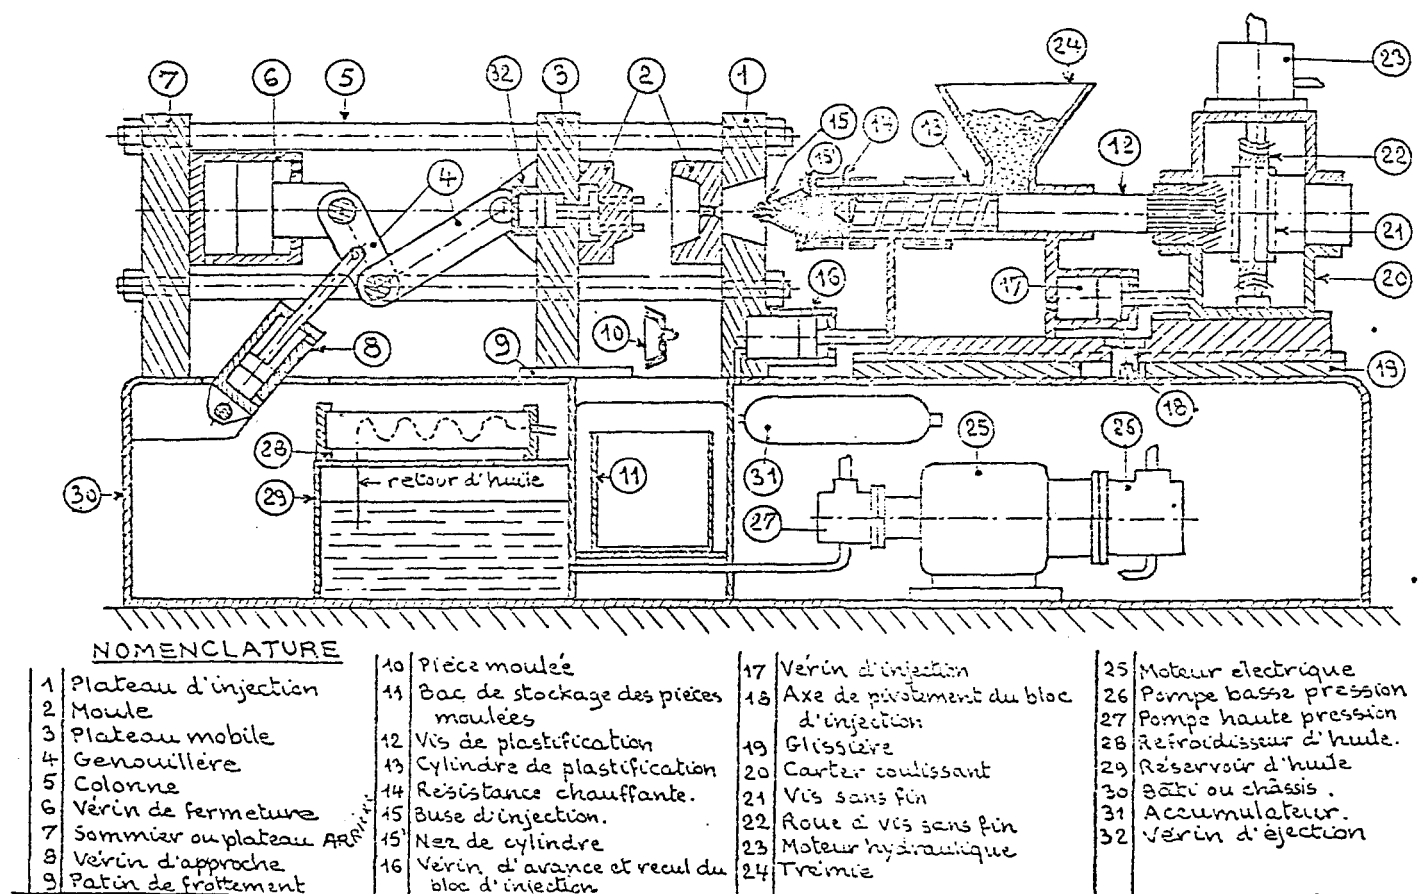 24
23
7
6
5
32
3
2
1
15
14
13
15'
12
22
4
21
16
17
20
10
8
9
19
18
28
31
25
26
30
29
retour d'huile
11
27
NOMENCLATURE
1 Plateau d'injection
2 Moule
3 Plateau mobile
4 Genouillère
5 Colonne
6 Vérin de fermeture
7 Sommier ou plateau ARRIERE
8 Vérin d'approche
9 Patin de frottement
10 Pièce moulée
11 Bac de stockage des pièces
moulées
12 Vis de plastification
13 Cylindre de plastification
14 Résistance chauffante.
15 Buse d'injection.
15' Nez de cylindre
16 Vérin d'avance et recul du
bloc d'injection
17 Vérin d'injection
18 Axe de pivotement du bloc
d'injection
19 Glissière
20 Carter coulissant
21 Vis sans fin
22 Roue à vis sans fin
23 Moteur hydraulique
24 Trémie
25 Moteur électrique
26 Pompe basse pression
27 Pompe haute pression
28 Refroidisseur d'huile.
29 Réservoir d'huile
30 Bâti ou châssis.
31 Accumulateur.
32 Vérin d'éjection